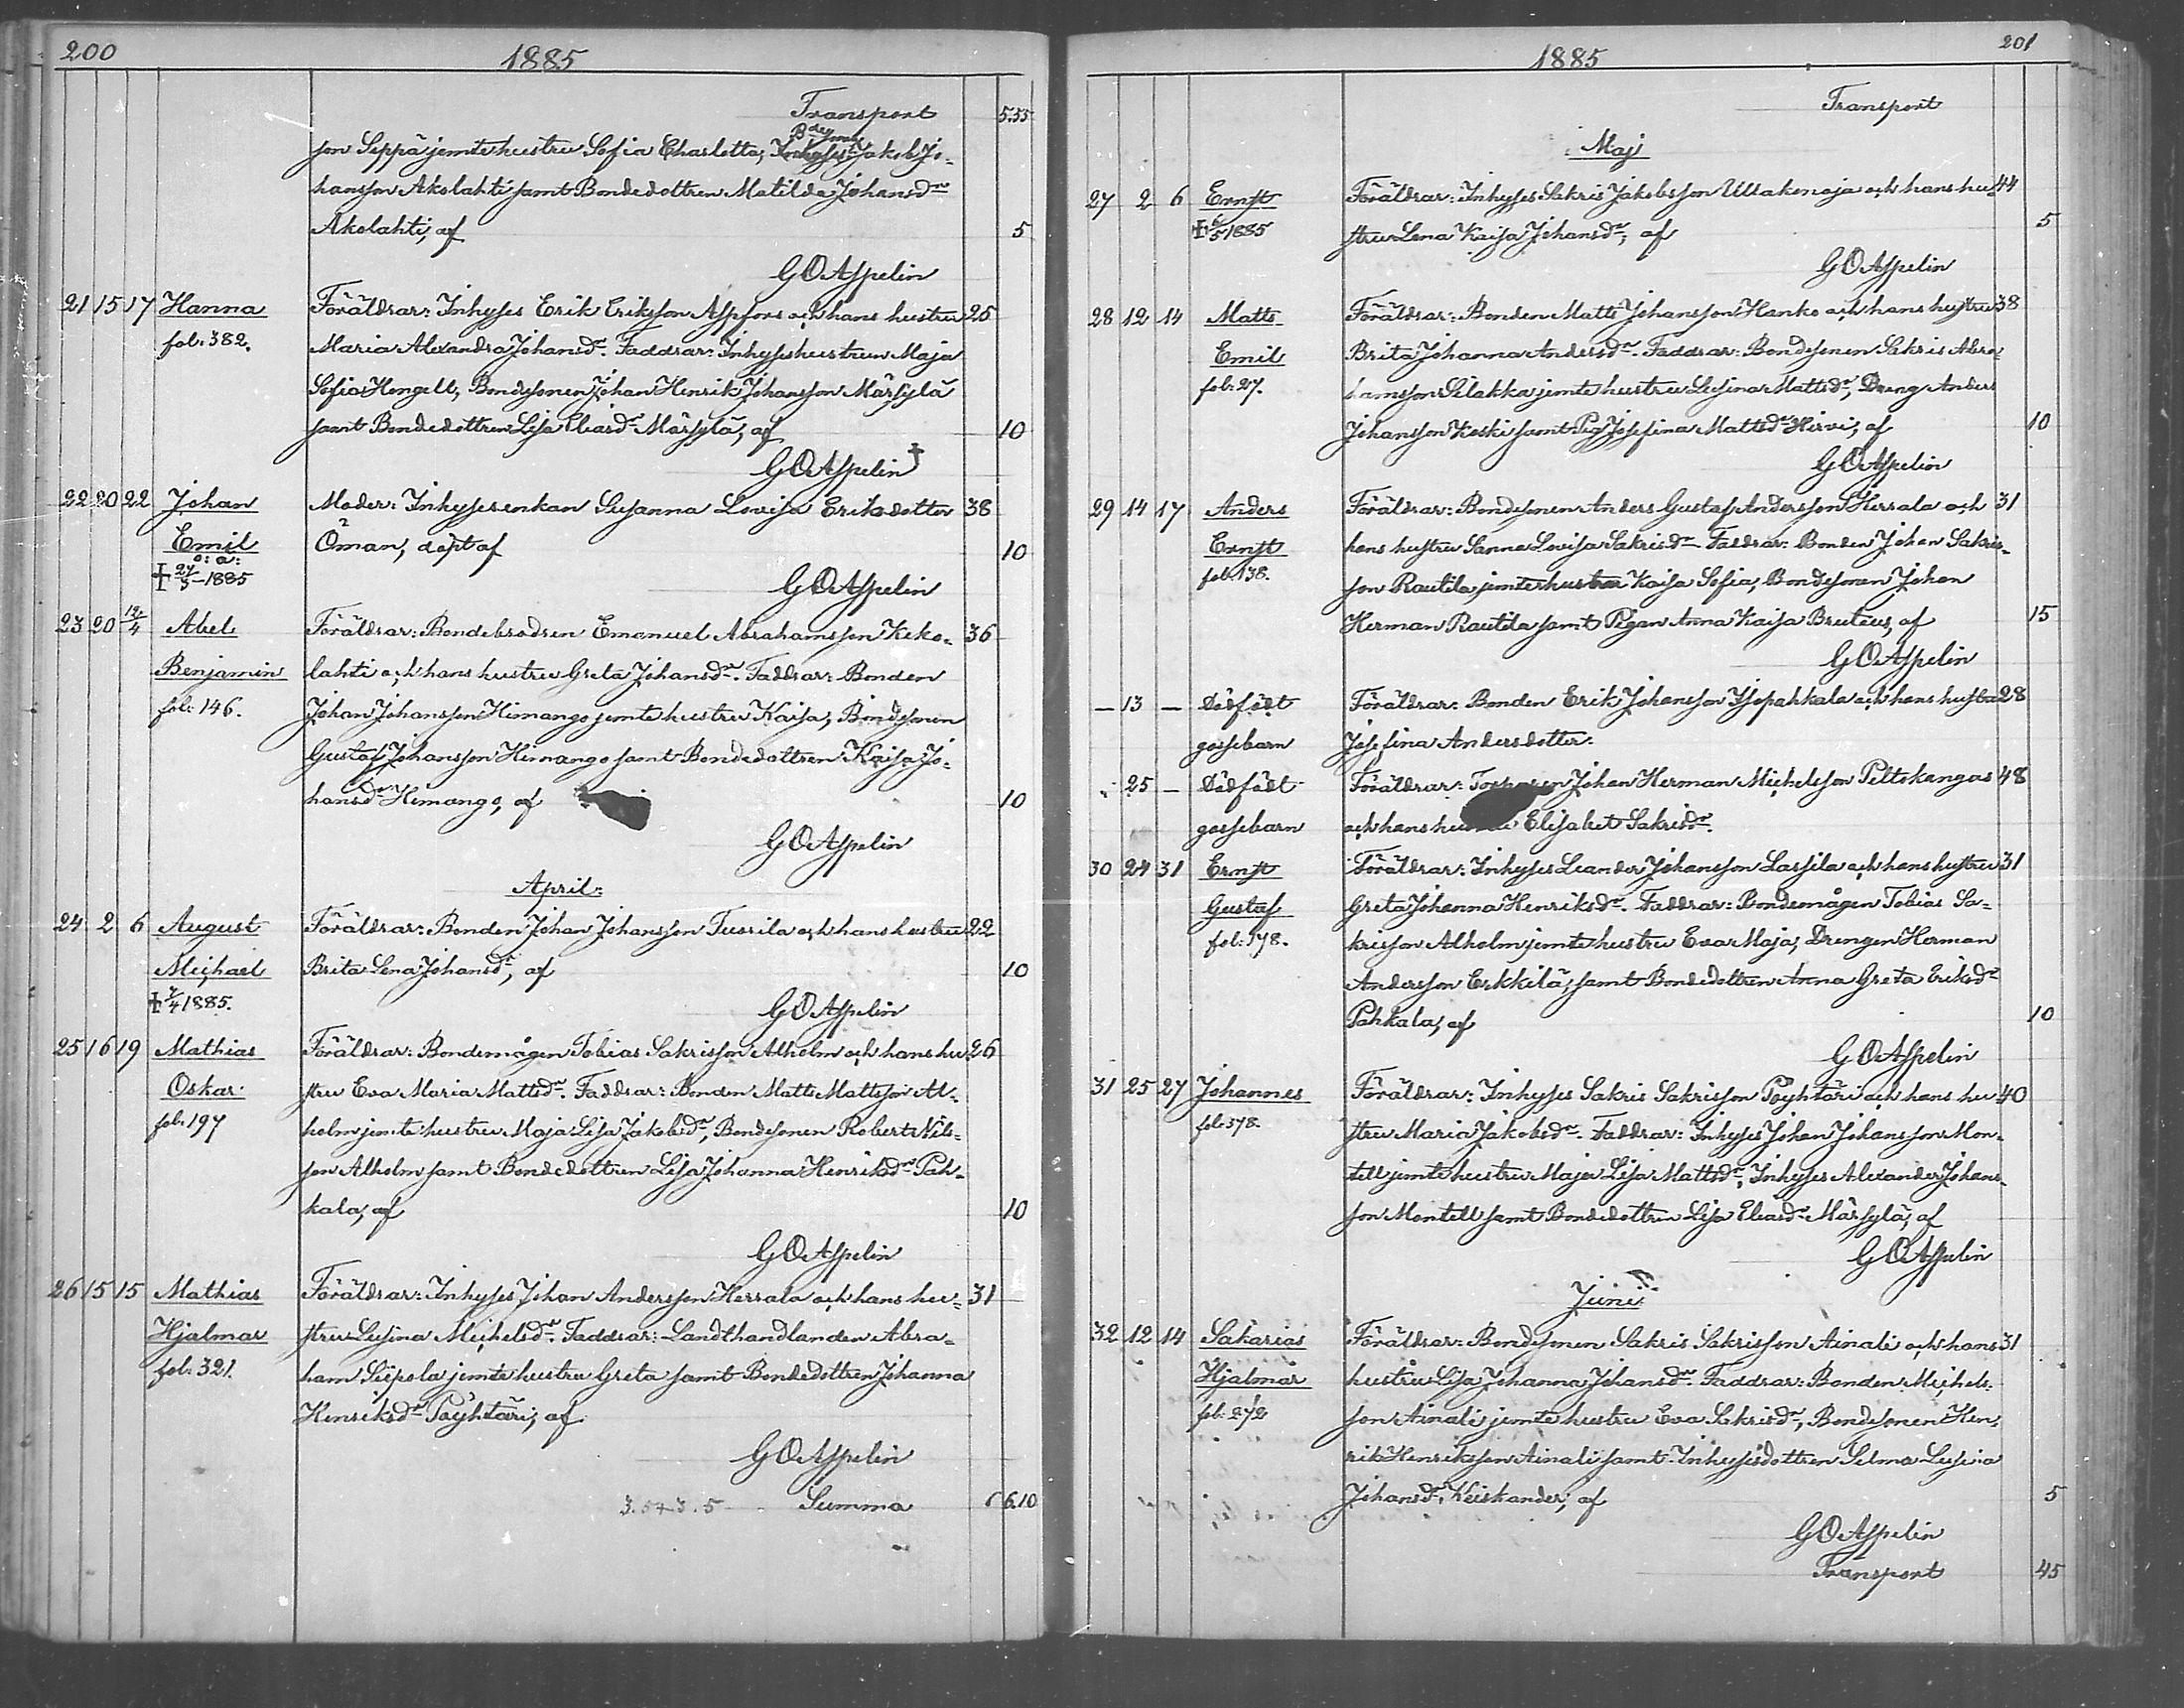 200
1885
Transport 5.55
Bdesonen
son Seppä jemte hustru Sofia Charlotta, Jakob Jo-
hansson Akolahti samt Bondedottren Matilda Johansdr
Akolahti, af 5
G O Asspelin
21 15 17 Hanna Föräldrar: Inhyses Erik Eriksson Aspfors och hans hustru 25
fol. 382. Maria Alexandra Johansdr. Faddrar: Inhyseshustrun Maja
Sofia Hongell, Bondesonen Johan Henrik Johansson Märsylä
samt Bondedottren Lisa Eliasdr Märsylä, af 10
G O Asspelin
22 20 22 Johan Moder: Inhysesenkan Susanna Lovisa Eriksdotter 38
Emil Öman, döpt af 10
o: ä:
† 27/5 1885 G O Asspelin
23 20 12/4 Abel Föräldrar: Bondebrodren Emanuel Abrahamsson Keko- 36
Benjamin lahti och hans hustru Greta Johansdr. Faddrar: Bonden
fol: 146. Johan Johansson Himango jemte hustru Kaisa, Bondesonen
Gustaf Johansson Himango samt Bondedottren Kaisa Jo-
hansdr Himango, af 10
G O Asspelin
April:
24 2 6 August Föräldrar: Bonden Johan Johansson Tuorila och hans hustru 22
Michael Brita Lena Johansdr, af 10
† 7/4 1885. G O Asspelin
25 16 19 Mathias Föräldrar: Bondemågen Tobias Sakrisson Alholm och hans hu- 26
Oskar stru Eva Maria Mattsdr. Faddrar: Bonden Matts Mattsson Al-
fol. 197 holm jemte hustru Maja Lisa Jakobsdr, Bondesonen Robert Nils-
son Alholm samt Bondedottren Lisa Johanna Henriksdr Pah-
kala, af 10
G O Asspelin
26 15 15 Mathias Föräldrar: Inhyses Johan Andersson Herrala och hans hu- 31
Hjalmar stru Lusina Michelsdr. Faddrar: Landthandlanden Abra-
fol. 321. ham Siipola jemte hustru Greta samt Bondedottren Johanna
Henriksdr Pöyhtäri, af
G O Asspelin
Summa 6.10
201
1885
Transport
Maj
27 2 6 Ernst Föräldrar: Inhyses Sakris Jakobsson Ullakonoja och hans hu- 44
† 6/5 1885 stru Lena Kaisa Johansdr, af 5
G O Asspelin
28 12 14 Matts Föräldrar: Bonden Matts Johansson Hanko och hans hustru 38
Emil Brita Johanna Andersdr. Faddrar: Bondesonen Sakris Abra-
fol. 27. hamsson Silakka jemte hustru Lusina Mattsdr, Dreng Anders
Johansson Koski samt Pig. Josefina Mattsdr Hirvi, af 10
G O Asspelin
29 14 17 Anders Föräldrar: Bondesonen Anders Gustaf Andersson Herrala och 31
Ernst hans hustru Sanna Lovisa Sakrisdr. Faddrar: Bonden Johan Sakris-
fol. 138. son Rautila jemte hustru Kaisa Sofia, Bondesonen Johan
Herman Rautila samt Pigan Anna Kaisa Bruteus, af 15
G O Asspelin
— 13 — Dödfödt Föräldrar: Bonden Erik Johansson Isopahkala och hans hustru 28
gossebarn Josefina Andersdotter.
25 — Dödfödt Föräldrar: Johan Herman Michelsson Peltokangas 48
gossebarn och hans Elisabet Sakrisdr.
30 24 31 Ernst Föräldrar: Inhyses Leander Johansson Lassila och hans hustru 31
Gustaf Greta Johanna Henriksdr. Faddrar: Bondemågen Tobias Sa-
fol: 178. krisson Alholm jemte hustru Eva Maja, Drengen Herman
Andersson Erkkilä, samt Bondedottren Anna Greta Eriksdr
Pahkala, af 10
G O Asspelin
31 25 27 Johannes Föräldrar: Inhyses Sakris Sakrisson Pöyhtäri och hans hu- 40
fol. 378. stru Maria Jakobsdr. Faddrar: Inhyses Johan Johansson Mon-
tell jemte hustru Maja Lisa Mattsdr, Inhyses Alexander Johans-
son Montell samt Bondedottren Lisa Eliasdr Märsylä, af
G O Asspelin
Juni:
32 12 14 Sakarias Föräldrar: Bondesonen Sakris Sakrisson Ainali och hans 31
Hjalmar hustru Lisa Johanna Johansdr. Faddrar: Bonden Michels-
fol. 272 son Ainali jemte hustru Eva Sakrisdr, Bondesonen Hen-
rik Henriksson Ainali samt Inhysesdottren Selma Lusina
Johansdr Keiskander, af 5
G O Asspelin
Transport 45